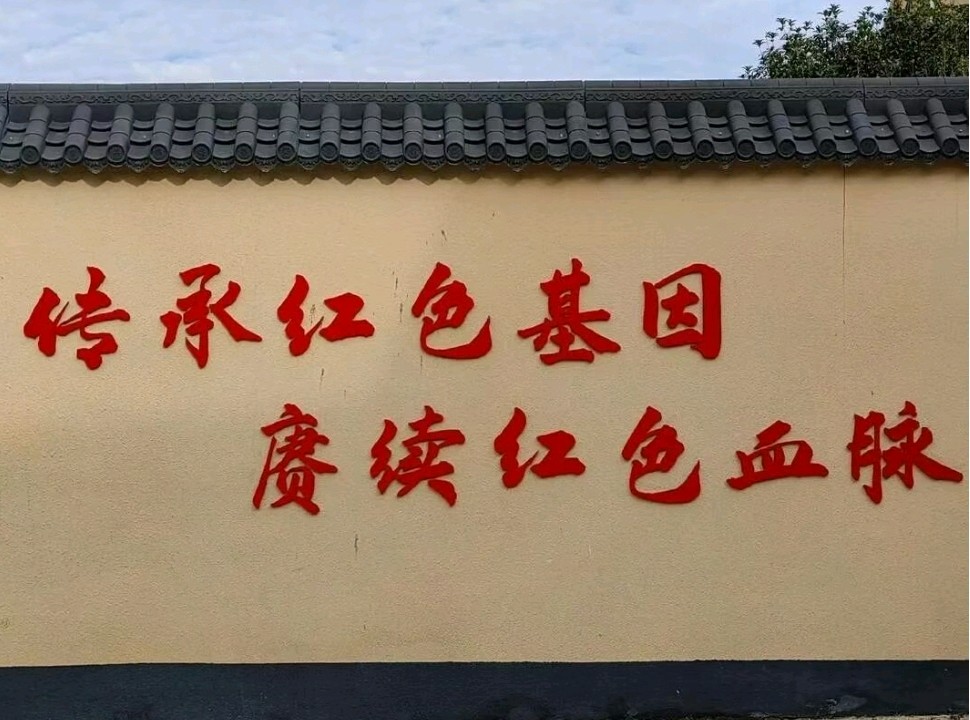 传承红色基因
赓续红色血脉